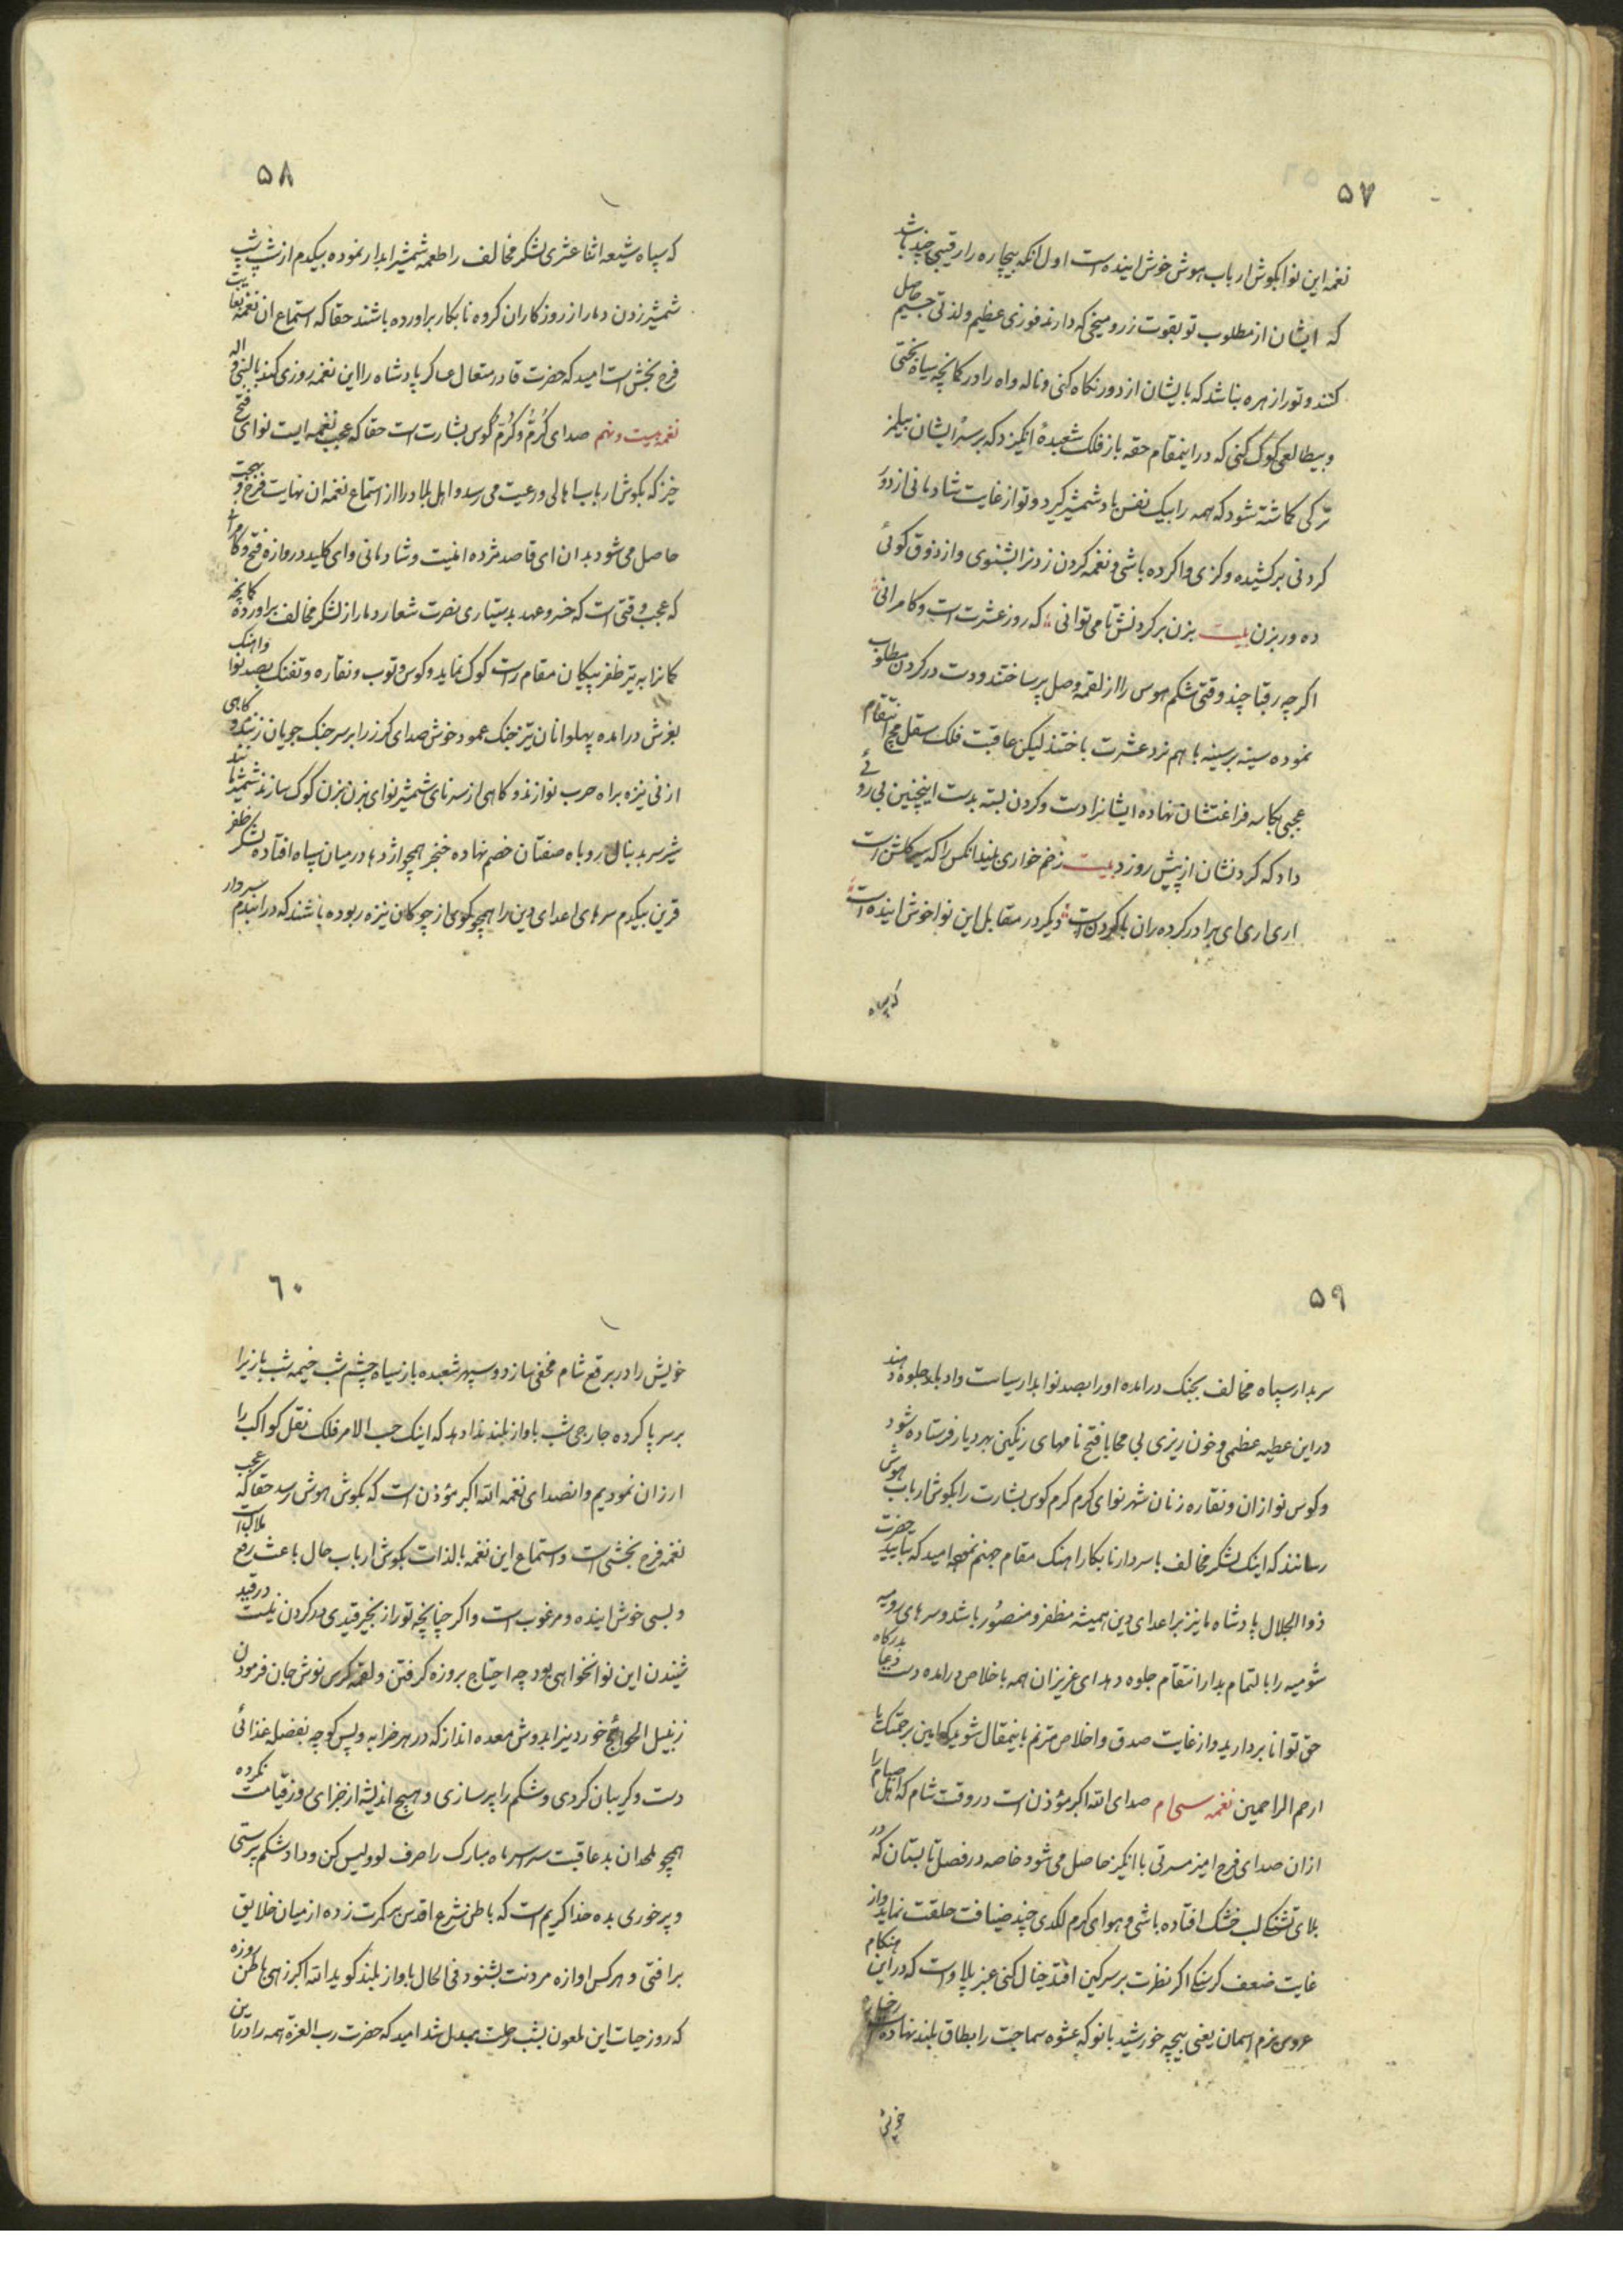 ۵۷
نغمه این نوا بگوش ارباب هوش خوش اینده است اول انکه بیچاره را رقیبی چند باشد
که ایشان از مطلوب تو بقوت زر و میخی که دارند فوزی عظیم ولذتی جسیم حاصل
کنند و تو را زهره نباشد که بایشان از دور نکاه کنی و ناله واه را در کمانچه سیاه بختی
وبیطالعی کوک کنی که در اینمقام حقه باز فلک شعبدهٔ انکیزد که بر سرایشان
ترکی کماشته شود که همه را بیک نفس باد شمشیر کیرد و تو از غایت شادمانی از دور
کردنی برکشیده و کزی وا کرده باشی و نغمه کردن زدنرا بشنوی واز ذوق کوئی
ده ور بزن بیت بزن بر کردنش تا می توانی که روز عشرت است و کامرانی
اکرچه رقبا چند وقتی شکم هوس را از لقمه وصل پر ساختند ودست در کردن مطلوب
نموده سینه بر سینه با هم نرد عشرت باختند لیکن عاقبت فلک سفله انتقام
عجبی بکاسه فراغتشان نهاده ایشانرا دست و کردن بسته بدست اینچنین بی روئی
داد که کردنشان از پیش روزد بیت زخم خواری بلند انکس را که سرکش است
اری اری ای برادر کرده ران با کردن است دیکر در مقابل این نوا خوش اینده است
که سپاه
۵۸
که سپاه شیعه اثنا عشری لشکر مخالف را طعمه شمشیر ابدار نموده بیکدم از شپ شپ
شمشیر زدن دمار از روزکار ان کروه نابکار براورده باشند حقا که استماع ان نغمه بغایت
فرح بخش است امید که حضرت قادر متعال عساکر پادشاه را این نغمه روزی کند بالنبی واله
نغمه بیست ونهم صدای کُرُمْ وکُرُمْ کوس بشارت است حقا که عجب نغمه ایست نوای فتح
خیز که بکوش ارباب اهالی ورعیت می رسد واهل بلاد را از استماع نغمه ان نهایت فرح و بهجت
حاصل می شود بدان ای قاصد مژده امنیت وشادمانی وای کلید دروازه فتح وکامرانی
که عجب وقتی است که خسرو عهد بدستیاری نصرت شعار دمار از لشکر مخالف براورده کمانچه
کمانرا به تیر ظفر پیکان مقام راست کوک نماید وکوس وتوب ونقاره وتفنک بصد نوا واهنک
بغرش درامده پهلوانان تیز جنک عمود خوش صدای کرز را بر سر جنک جویان زنند وکاهی
از نی نیزه براه حرب نوازند وکاهی از سرنای شمشیر نوای بزن بزن کوک سازند شمشیر
شیر سر بدنبال روباه صفتان خصم نهاده خنجر همچو اژدها در میان سپاه افتاده لشکر ظفر
قرین بیکدم سرهای اعدای دین را همچو کوی از چوکان نیزه ربوده باشند که در اندم سردار
۵۹
سربدار سپاه مخالف بجنک درامده اورا بصد نوا بدار سیاست داد بلد جلوه دهند
در این عطیه عظمی وخون ریزی بی محابا فتح نامهای رنکین بهر دیار فرستاده شود
وکوس نوازان ونقاره زنان شهر نوای کرم کرم کوس بشارت را بکوش ارباب هوش
رسانند که اینک لشکر مخالف با سردار نابکار اهنک مقام جهنم نمود امید که بتایید حضرت
ذوالجلال پادشاه ما نیز بر اعدای دین همیشه مظفر و منصُور باشد وسرهای رومیه
شومیه را بالتمام بدار انتقام جلوه دهد ای عزیزان همه باخلاص درامده دست دعا بدرکاه
حق توانا بردارید واز غایت صدق واخلاص مترنم باینمقال شوید که امین برحمتک یا
ارحم الراحمین نغمه سی‌ام صدای الله اکبر مؤذن است در وقت شام که اهل صیام را
از ان صدای فرح امیز مسرتی با انکیز حاصل می شود خاصه در فصل تابستان که در
بلای تشنکی لب خشک افتاده باشی وهوای کرم لکدی چند ضیافت حلقت نماید واز
غایت ضعف کرسنکی اکر نظرت بر سرکین افتد خیال کنی عنبر پلاو است که در این هنکام
عروس بزم اسمان یعنی بیچه خورشید بانو که عشوه سماجت را بطاق بلند نهاده است رخساره
خویش
۶۰
خویش را در برقع شام مخفی سازد وسپهر شعبده باز سیاه چشم شب خیمه شب بازیرا
بر سر پا کرده جارجی شب باواز بلند ندا دهد که اینک حسب الامر فلک نقل کواکب را
ارزان نمودیم وانصدای نغمه الله اکبر مؤذن است که بکوش هوش رسد حقا که عجب
نغمه فرح بخشی است واستماع این نغمه بالذات بکوش ارباب حال باعث رفع ملال است
وبسی خوش اینده ومرغوب است واکر چنانچه تو را زنجیر قیدی در کردن نیست در قید
شنیدن این نوا نخواهی بود چه احتیاج بروزه کرفتن ولقمه کرسنکی نوش جان فرمودن
زنبیل الحوائج خوردنیرا بدوش معده انداز که در هر خرابه وپس کوچه بفضله غذائی
دست وکریبان کردی وشکم را پر سازی وهیچ اندیشه از جزای روز قیامت نکرده
همچو ملحدان بد عاقبت سراسر ماه مبارک را صرف لوولیس کن وداد شکم پرستی
وپر خوری بده خدا کریم است که باطن شرع اقدس بر کمرت زده از میان خلایق
برافتی وهر کس اوازه مردنت بشنود فی الحال باواز بلند کوید الله اکبر زهی باطن روزه
که روز حیات این ملعون بشب رحلت مبدل شد امید که حضرت رب العزة همه را در این